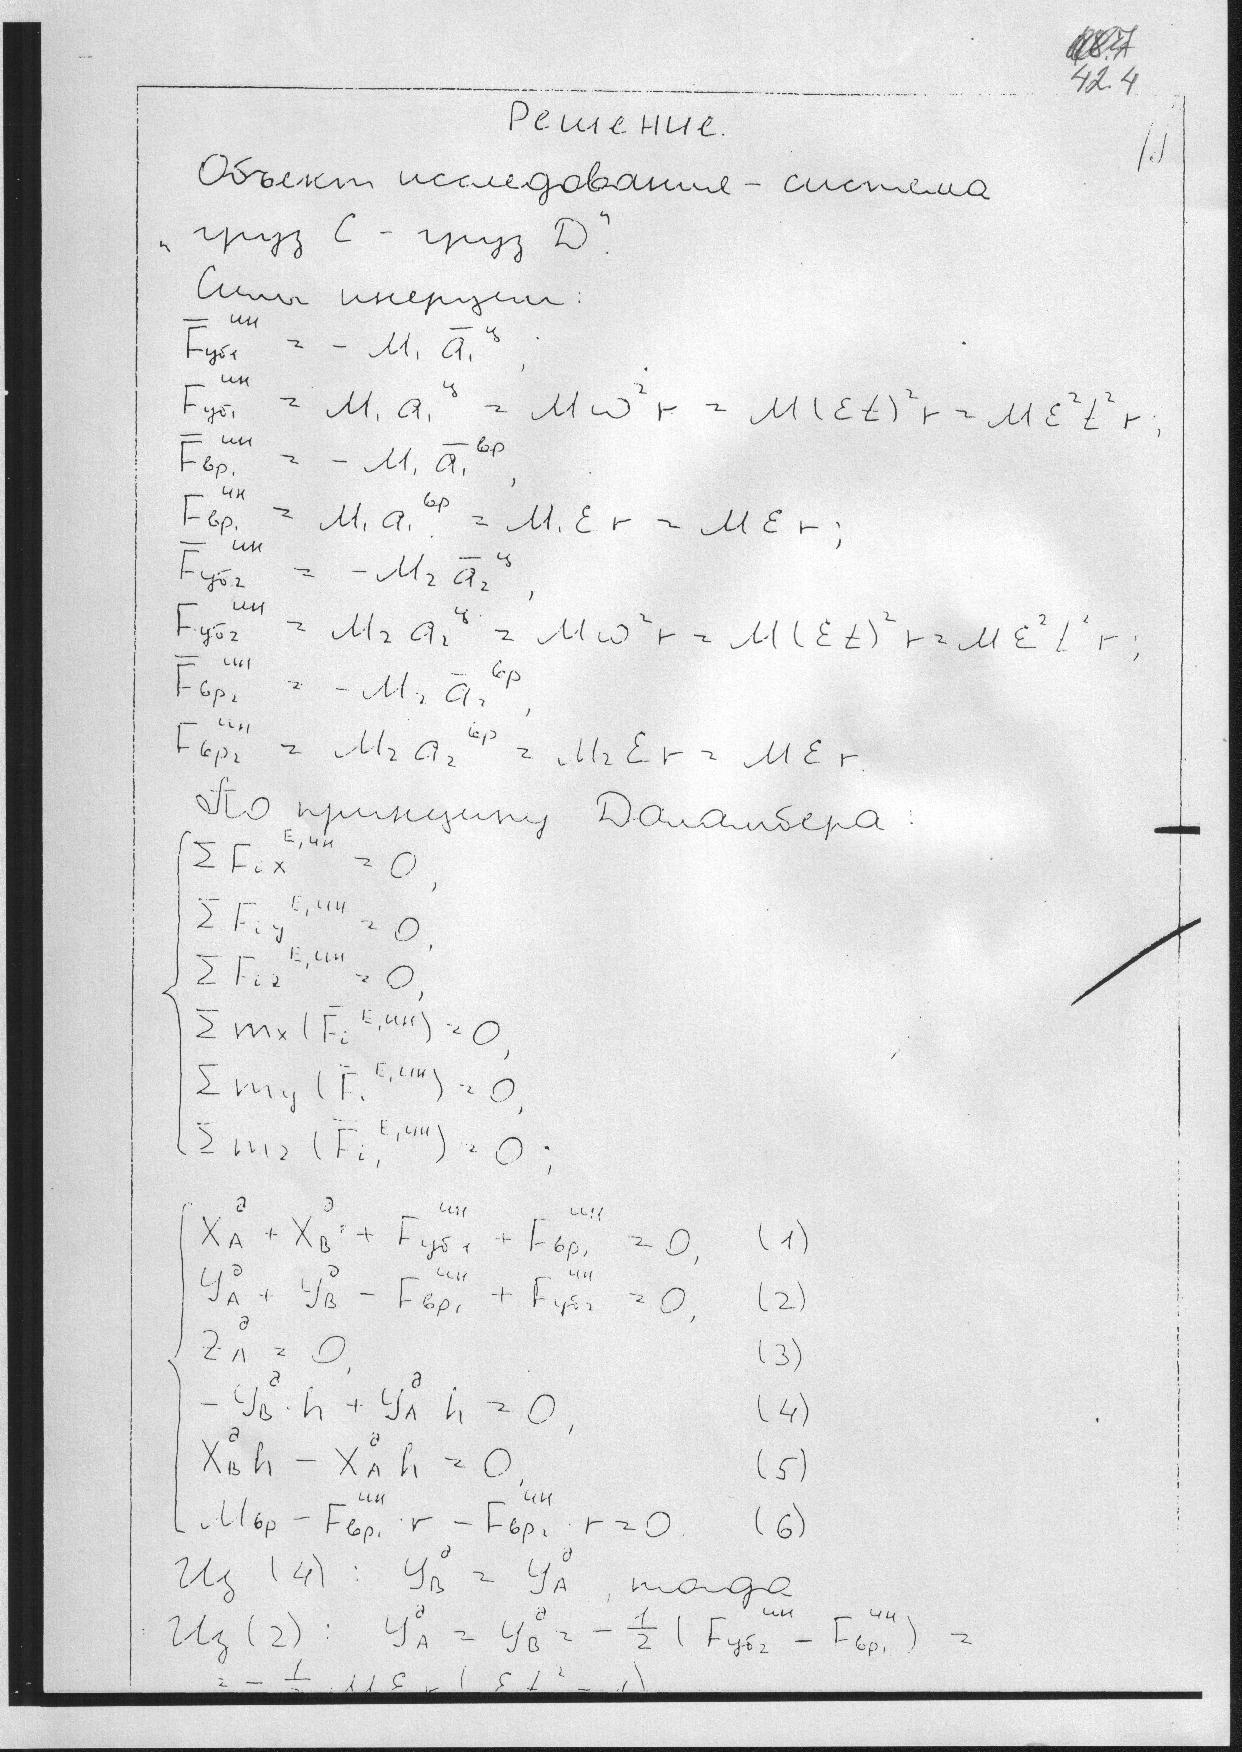 42.4
Решение.
Объект исследования – система
„груз C – груз D“.
Силы инерции:
F̄уб₁^ин = – M₁ ā₁^ц,
Fуб₁^ин = M₁ a₁^ц = M ω² r = M (εt)² r = M ε² t² r;
F̄вр₁^ин = – M₁ ā₁^вр,
Fвр₁^ин = M₁ a₁^вр = M₁ ε r = M ε r;
F̄уб₂^ин = – M₂ ā₂^ц,
Fуб₂^ин = M₂ a₂^ц = M ω² r = M (εt)² r = M ε² t² r;
F̄вр₂^ин = – M₂ ā₂^вр,
Fвр₂^ин = M₂ a₂^вр = M₂ ε r = M ε r.
По принципу Даламбера:
Σ Fix^E,ин = 0,
Σ Fiy^E,ин = 0,
Σ Fiz^E,ин = 0,
Σ mx (F̄i^E,ин) = 0,
Σ my (F̄i^E,ин) = 0,
Σ mz (F̄i^E,ин) = 0;
X_A^д + X_B^д + Fуб₁^ин + Fвр₁^ин = 0, (1)
Y_A^д + Y_B^д – Fвр₁^ин + Fуб₂^ин = 0, (2)
Z_A^д = 0, (3)
– Y_B^д · h + Y_A^д h = 0, (4)
X_B^д h – X_A^д h = 0, (5)
Mвр – Fвр₁^ин · r – Fвр₂^ин · r = 0. (6)
Из (4): Y_B^д = Y_A^д, тогда
Из (2): Y_A^д = Y_B^д = – 1/2 (Fуб₂^ин – Fвр₁^ин) =
= – 1/2 M ε r (εt² – 1)